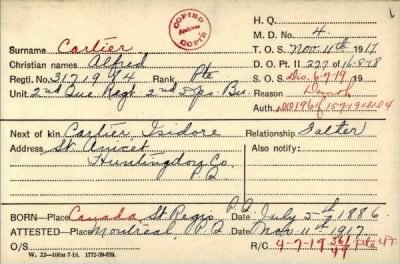 COPIED
COPIÉ
H. Q.
M. D. No. 4.
Surname Cartier
T. O. S. Nov. 11th 1917
Christian names Alfred
D. O. Pt. II 227 of 16-8-18
Regtl. No. 3171974 Rank Pte
S. O. S. Dis. 6-7-19 191
Unit 2nd Que Regt. 2nd Dps. Bn.
Reason Demob
Auth. DO 196 of 15-7-19
Next of kin Cartier Isidore
Relationship Father
Address St. Anicet
Also notify:
Huntingdon Co.
P.Q.
BORN—Place Canada St Regis P.Q. Date July 5th 1886
ATTESTED—Place Montréal, P.Q Date Nov 11th 1917.
O/S
R/C 4-7-19
W. 22—100M 7-18. 1772-39-829.